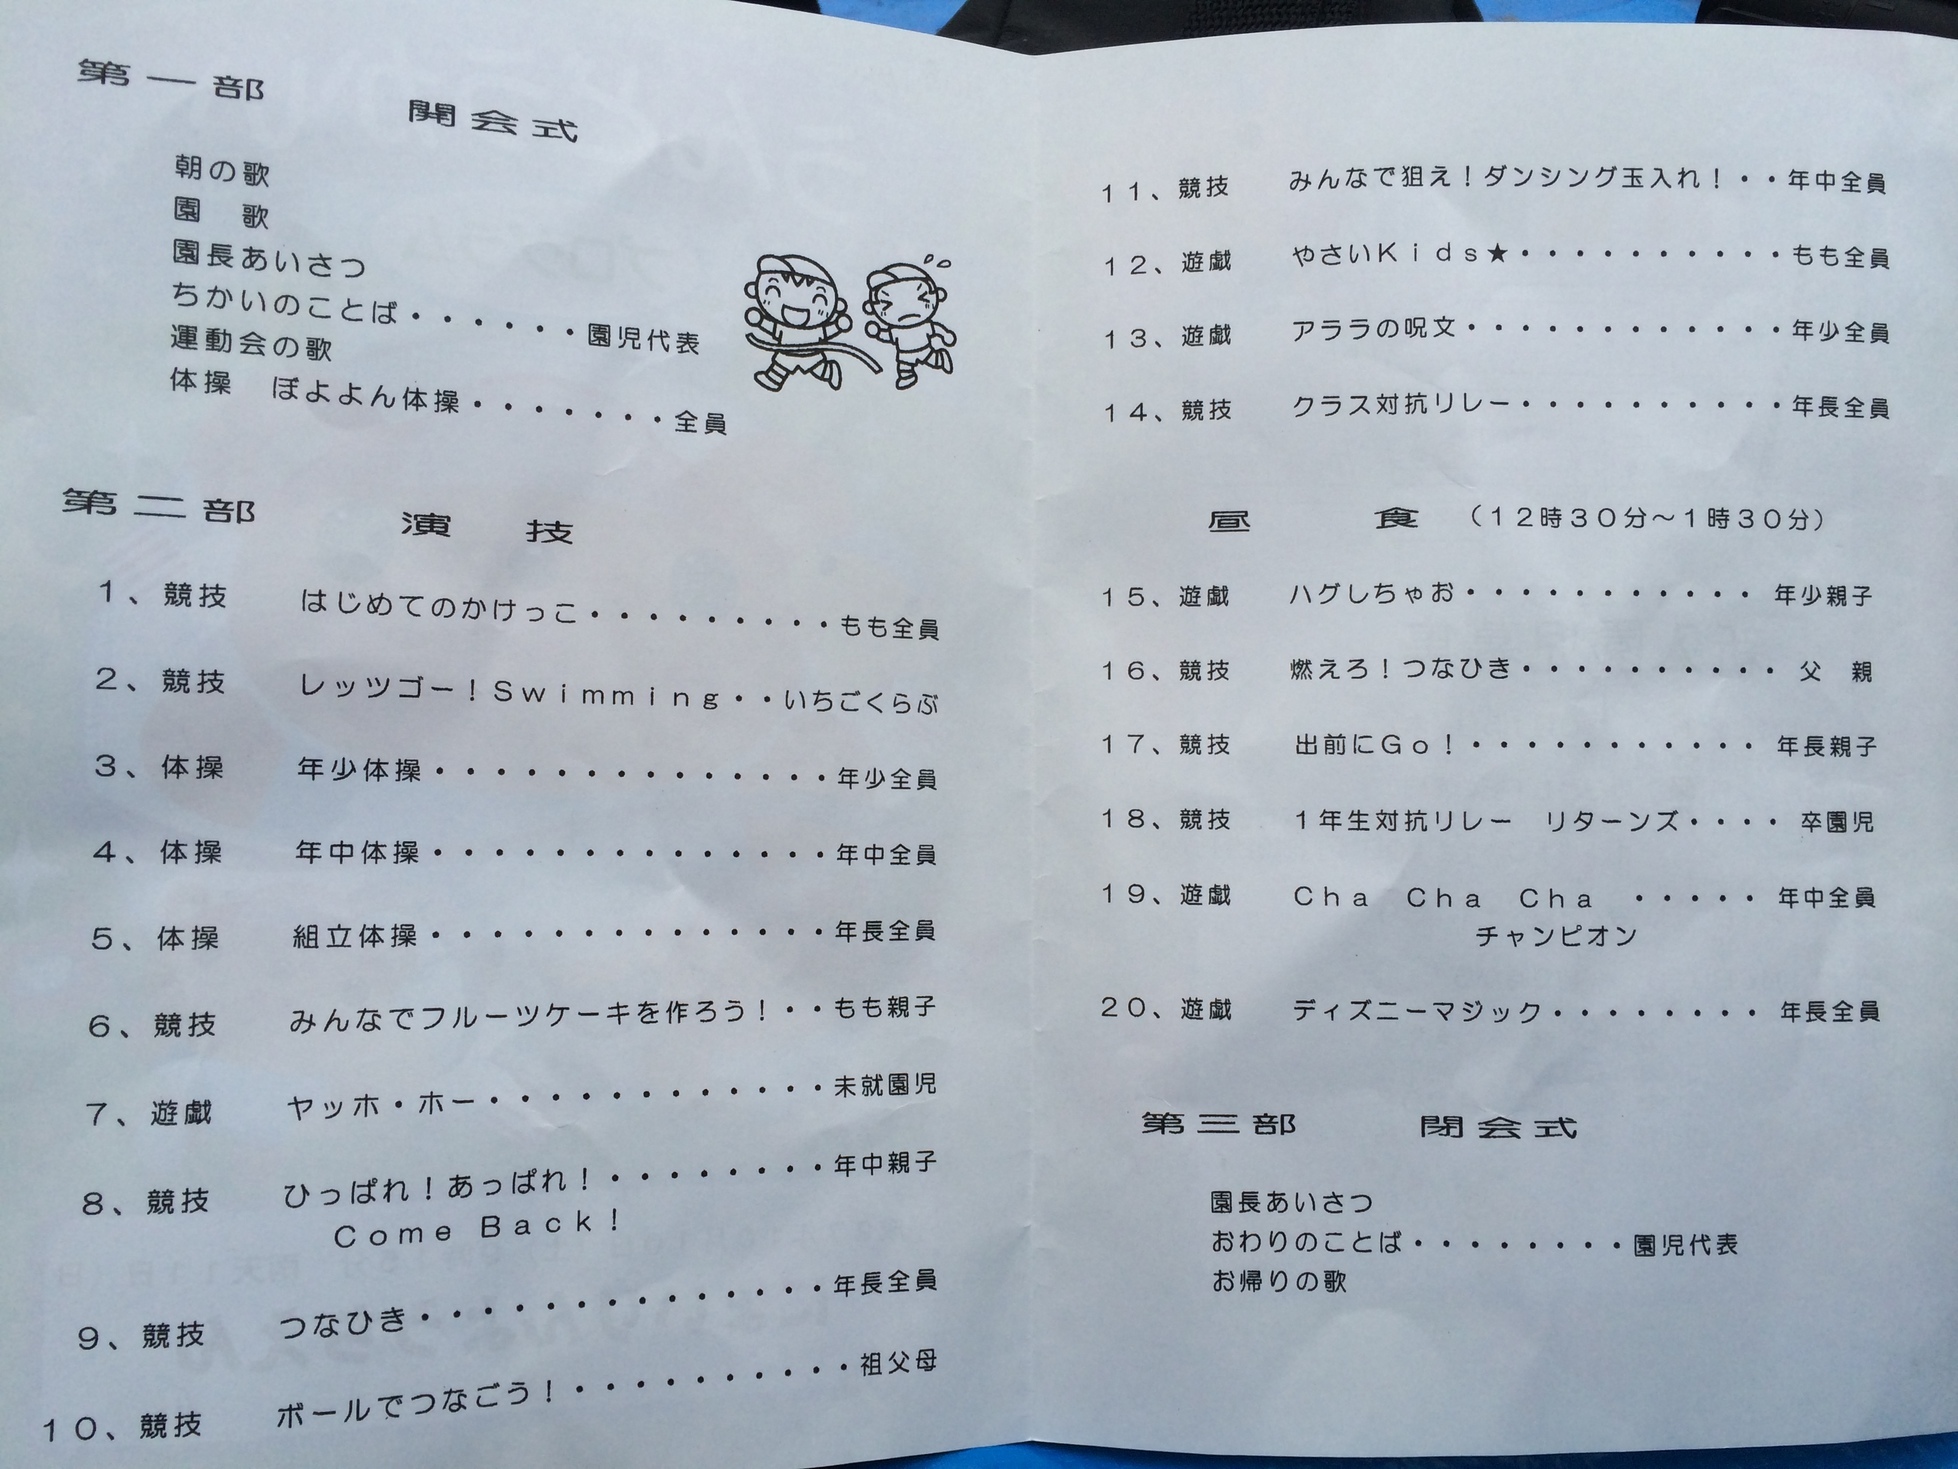 第一部　開会式
朝の歌
園　歌
園長あいさつ
ちかいのことば・・・・・・園児代表
運動会の歌
体操　ぼよよん体操・・・・・・・全員
第二部　演　技
１、競技　はじめてのかけっこ・・・・・・・・・もも全員
２、競技　レッツゴー！Ｓｗｉｍｍｉｎｇ・・いちごくらぶ
３、体操　年少体操・・・・・・・・・・・・・・年少全員
４、体操　年中体操・・・・・・・・・・・・・・年中全員
５、体操　組立体操・・・・・・・・・・・・・・年長全員
６、競技　みんなでフルーツケーキを作ろう！・・もも親子
７、遊戯　ヤッホ・ホー・・・・・・・・・・・・・未就園児
８、競技　ひっぱれ！あっぱれ！・・・・・・・・年中親子
Ｃｏｍｅ　Ｂａｃｋ！
９、競技　つなひき・・・・・・・・・・・・・・年長全員
１０、競技　ボールでつなごう！・・・・・・・・・・祖父母
１１、競技　みんなで狙え！ダンシング玉入れ！・・年中全員
１２、遊戯　やさいＫｉｄｓ★・・・・・・・・・・もも全員
１３、遊戯　アララの呪文・・・・・・・・・・・・年少全員
１４、競技　クラス対抗リレー・・・・・・・・・・年長全員
昼　食　（１２時３０分～１時３０分）
１５、遊戯　ハグしちゃお・・・・・・・・・・・年少親子
１６、競技　燃えろ！つなひき・・・・・・・・・・父　親
１７、競技　出前にＧｏ！・・・・・・・・・・・年長親子
１８、競技　１年生対抗リレー　リターンズ・・・・卒園児
１９、遊戯　Ｃｈａ　Ｃｈａ　Ｃｈａ　・・・・・年中全員
チャンピオン
２０、遊戯　ディズニーマジック・・・・・・・・年長全員
第三部　閉会式
園長あいさつ
おわりのことば・・・・・・・・園児代表
お帰りの歌